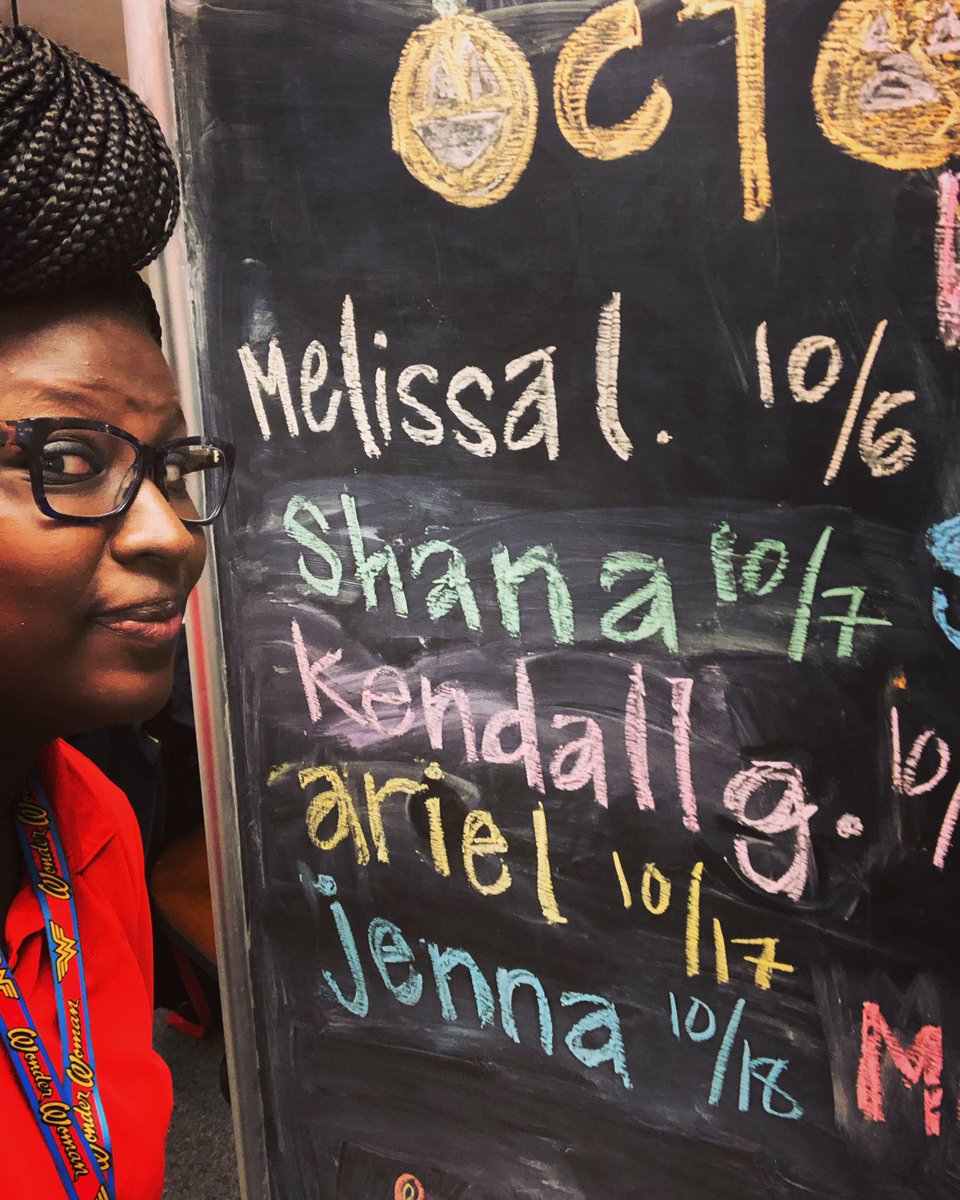 OCTO
Melissa l. 10/6
Shana 10/7
Kendall g. 10/
ariel 10/17
jenna 10/18
M
Wonder Woman
Wonder Woman
Wonder Woman